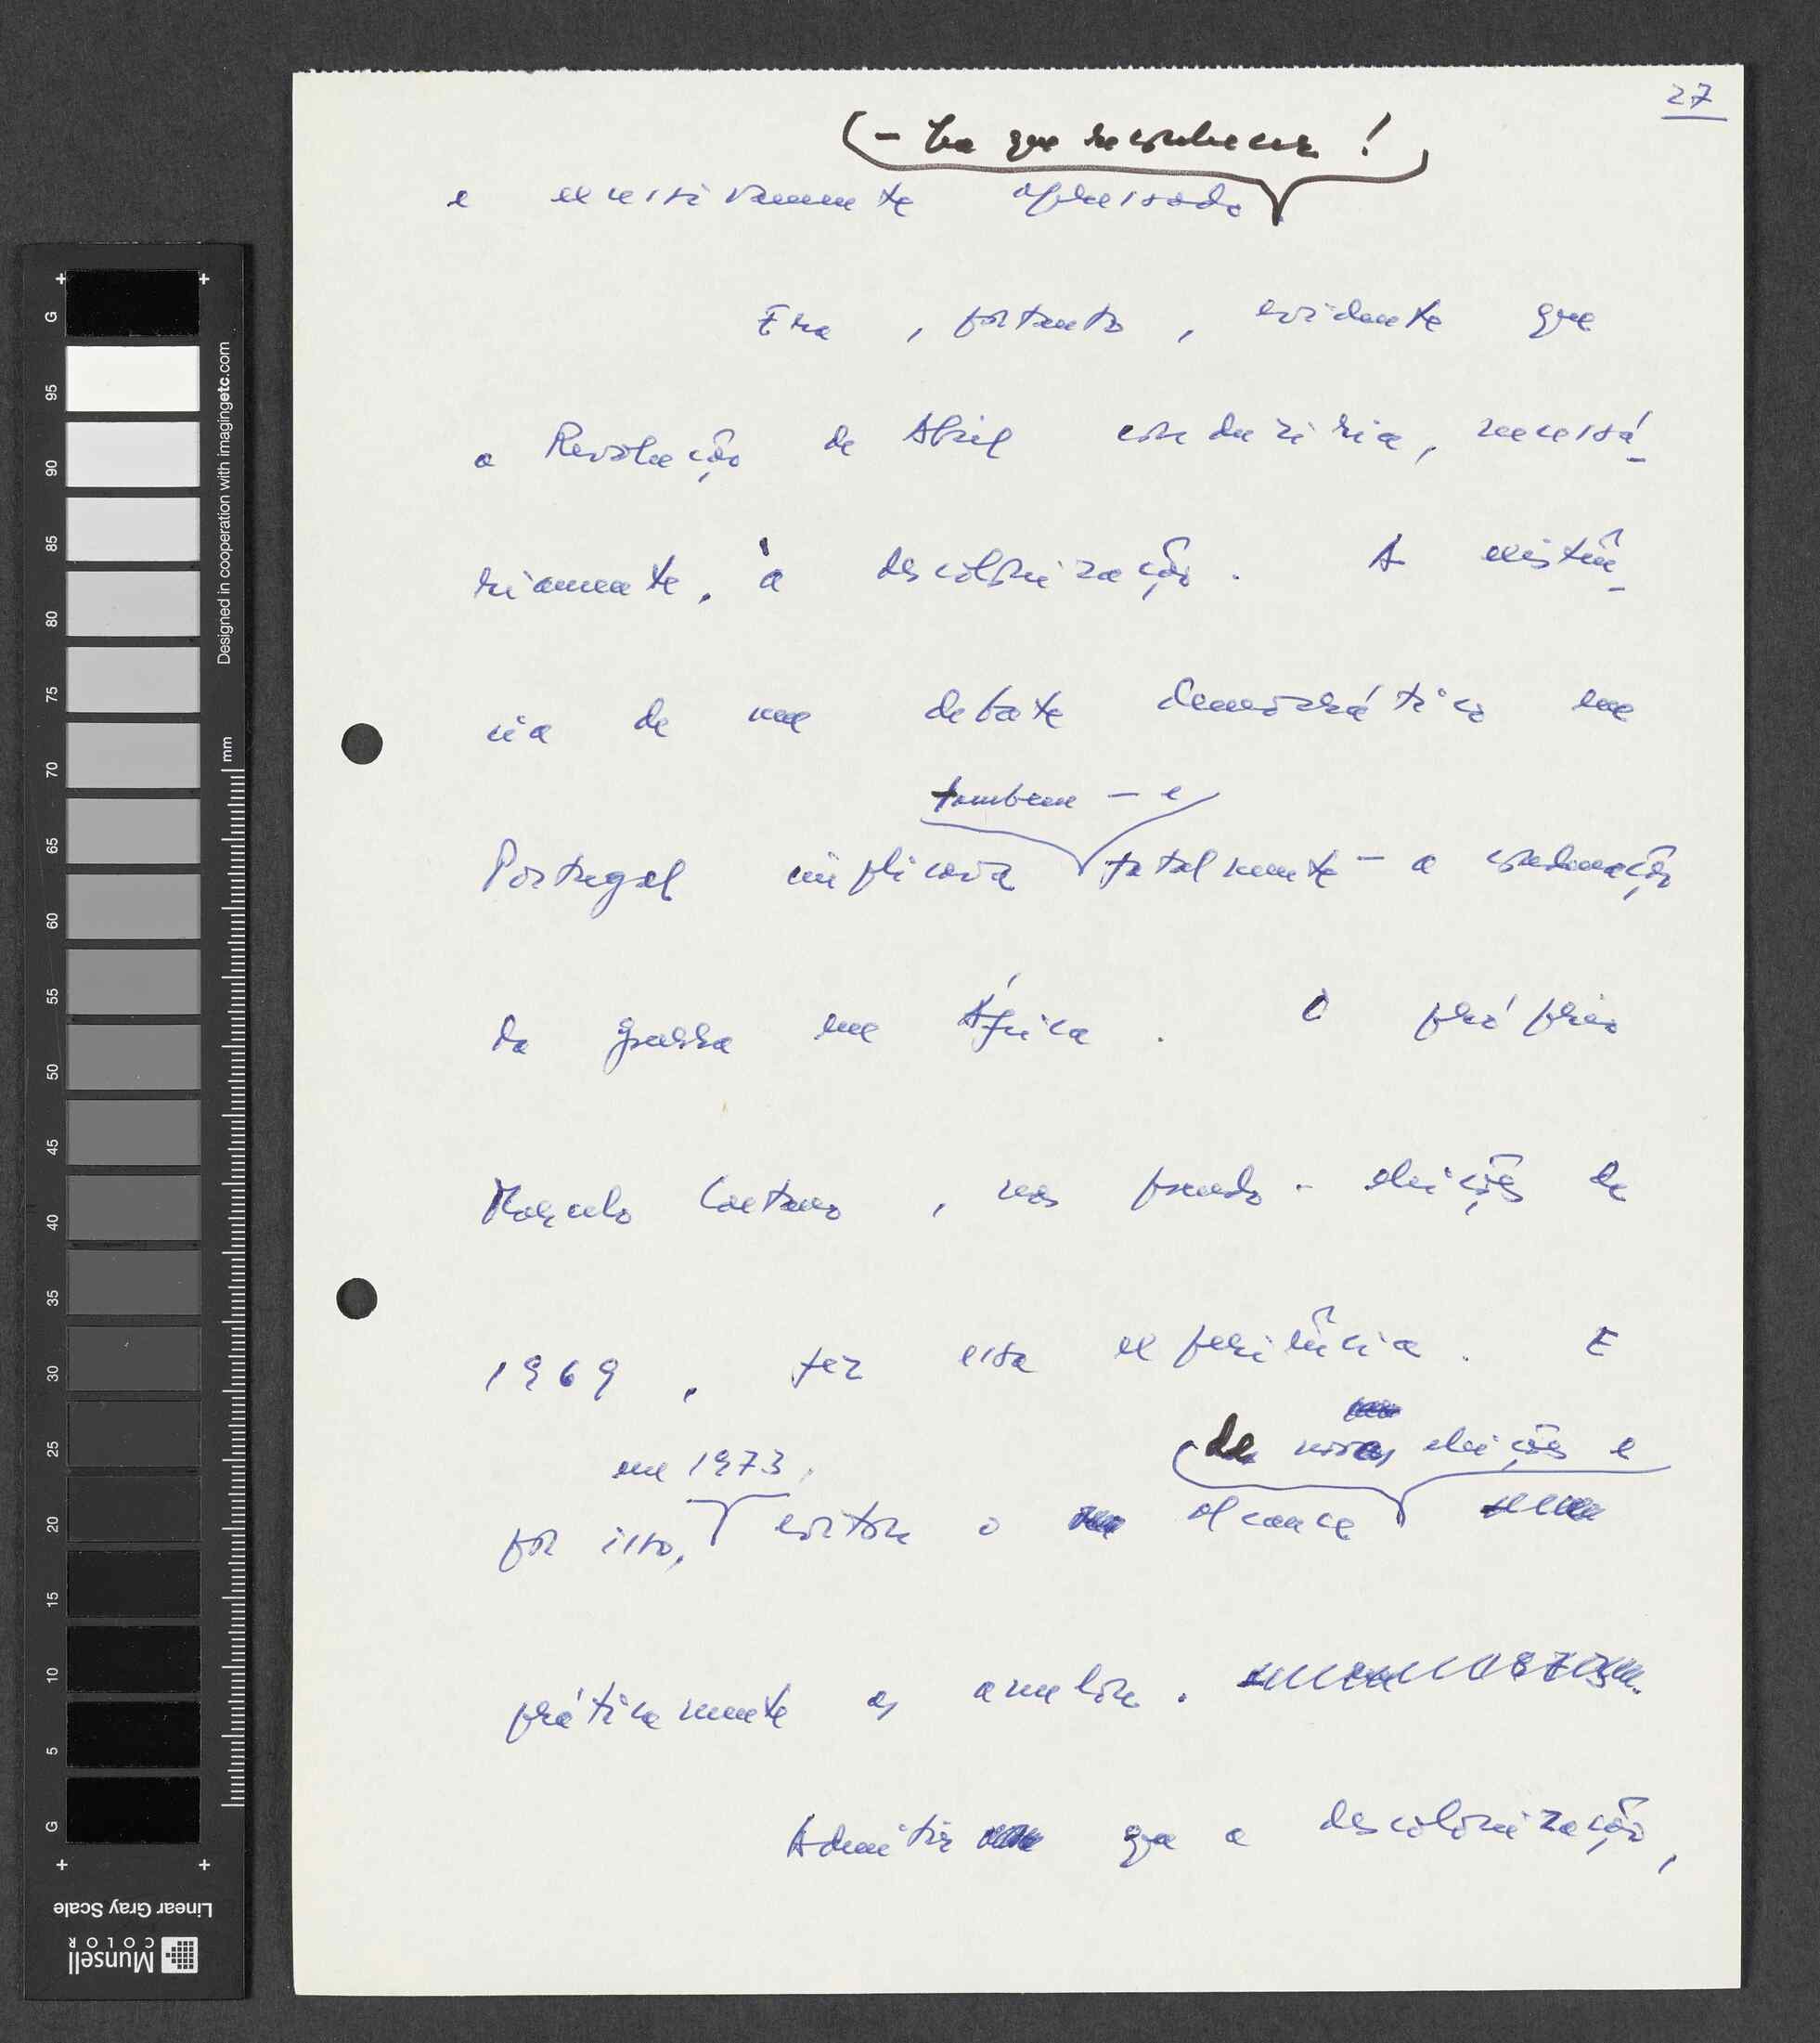 27
(- há que reconhecer!)
e excessivamente apressado.
Era, portanto, evidente que
a Revolução de Abril conduziria, necessá-
riamente, à descolonização. A existên-
cia de um debate democrático em
tambem - e
Portugal implicava fatalmente - a condenação
da guerra em África. O próprio
Marcelo Caetano, nas pseudo-eleições de
1969, fez essa experiência. E
de novas eleições e
em 1973,
por isso, evitou o alcance
práticamente as anulou.
Admitir que a descolonização,
G
95
90
85
80
75
70
65
60
55
50
45
40
35
30
25
20
15
10
5
G
Designed in cooperation with imagingetc.com
mm
Linear Gray Scale
Munsell
COLOR